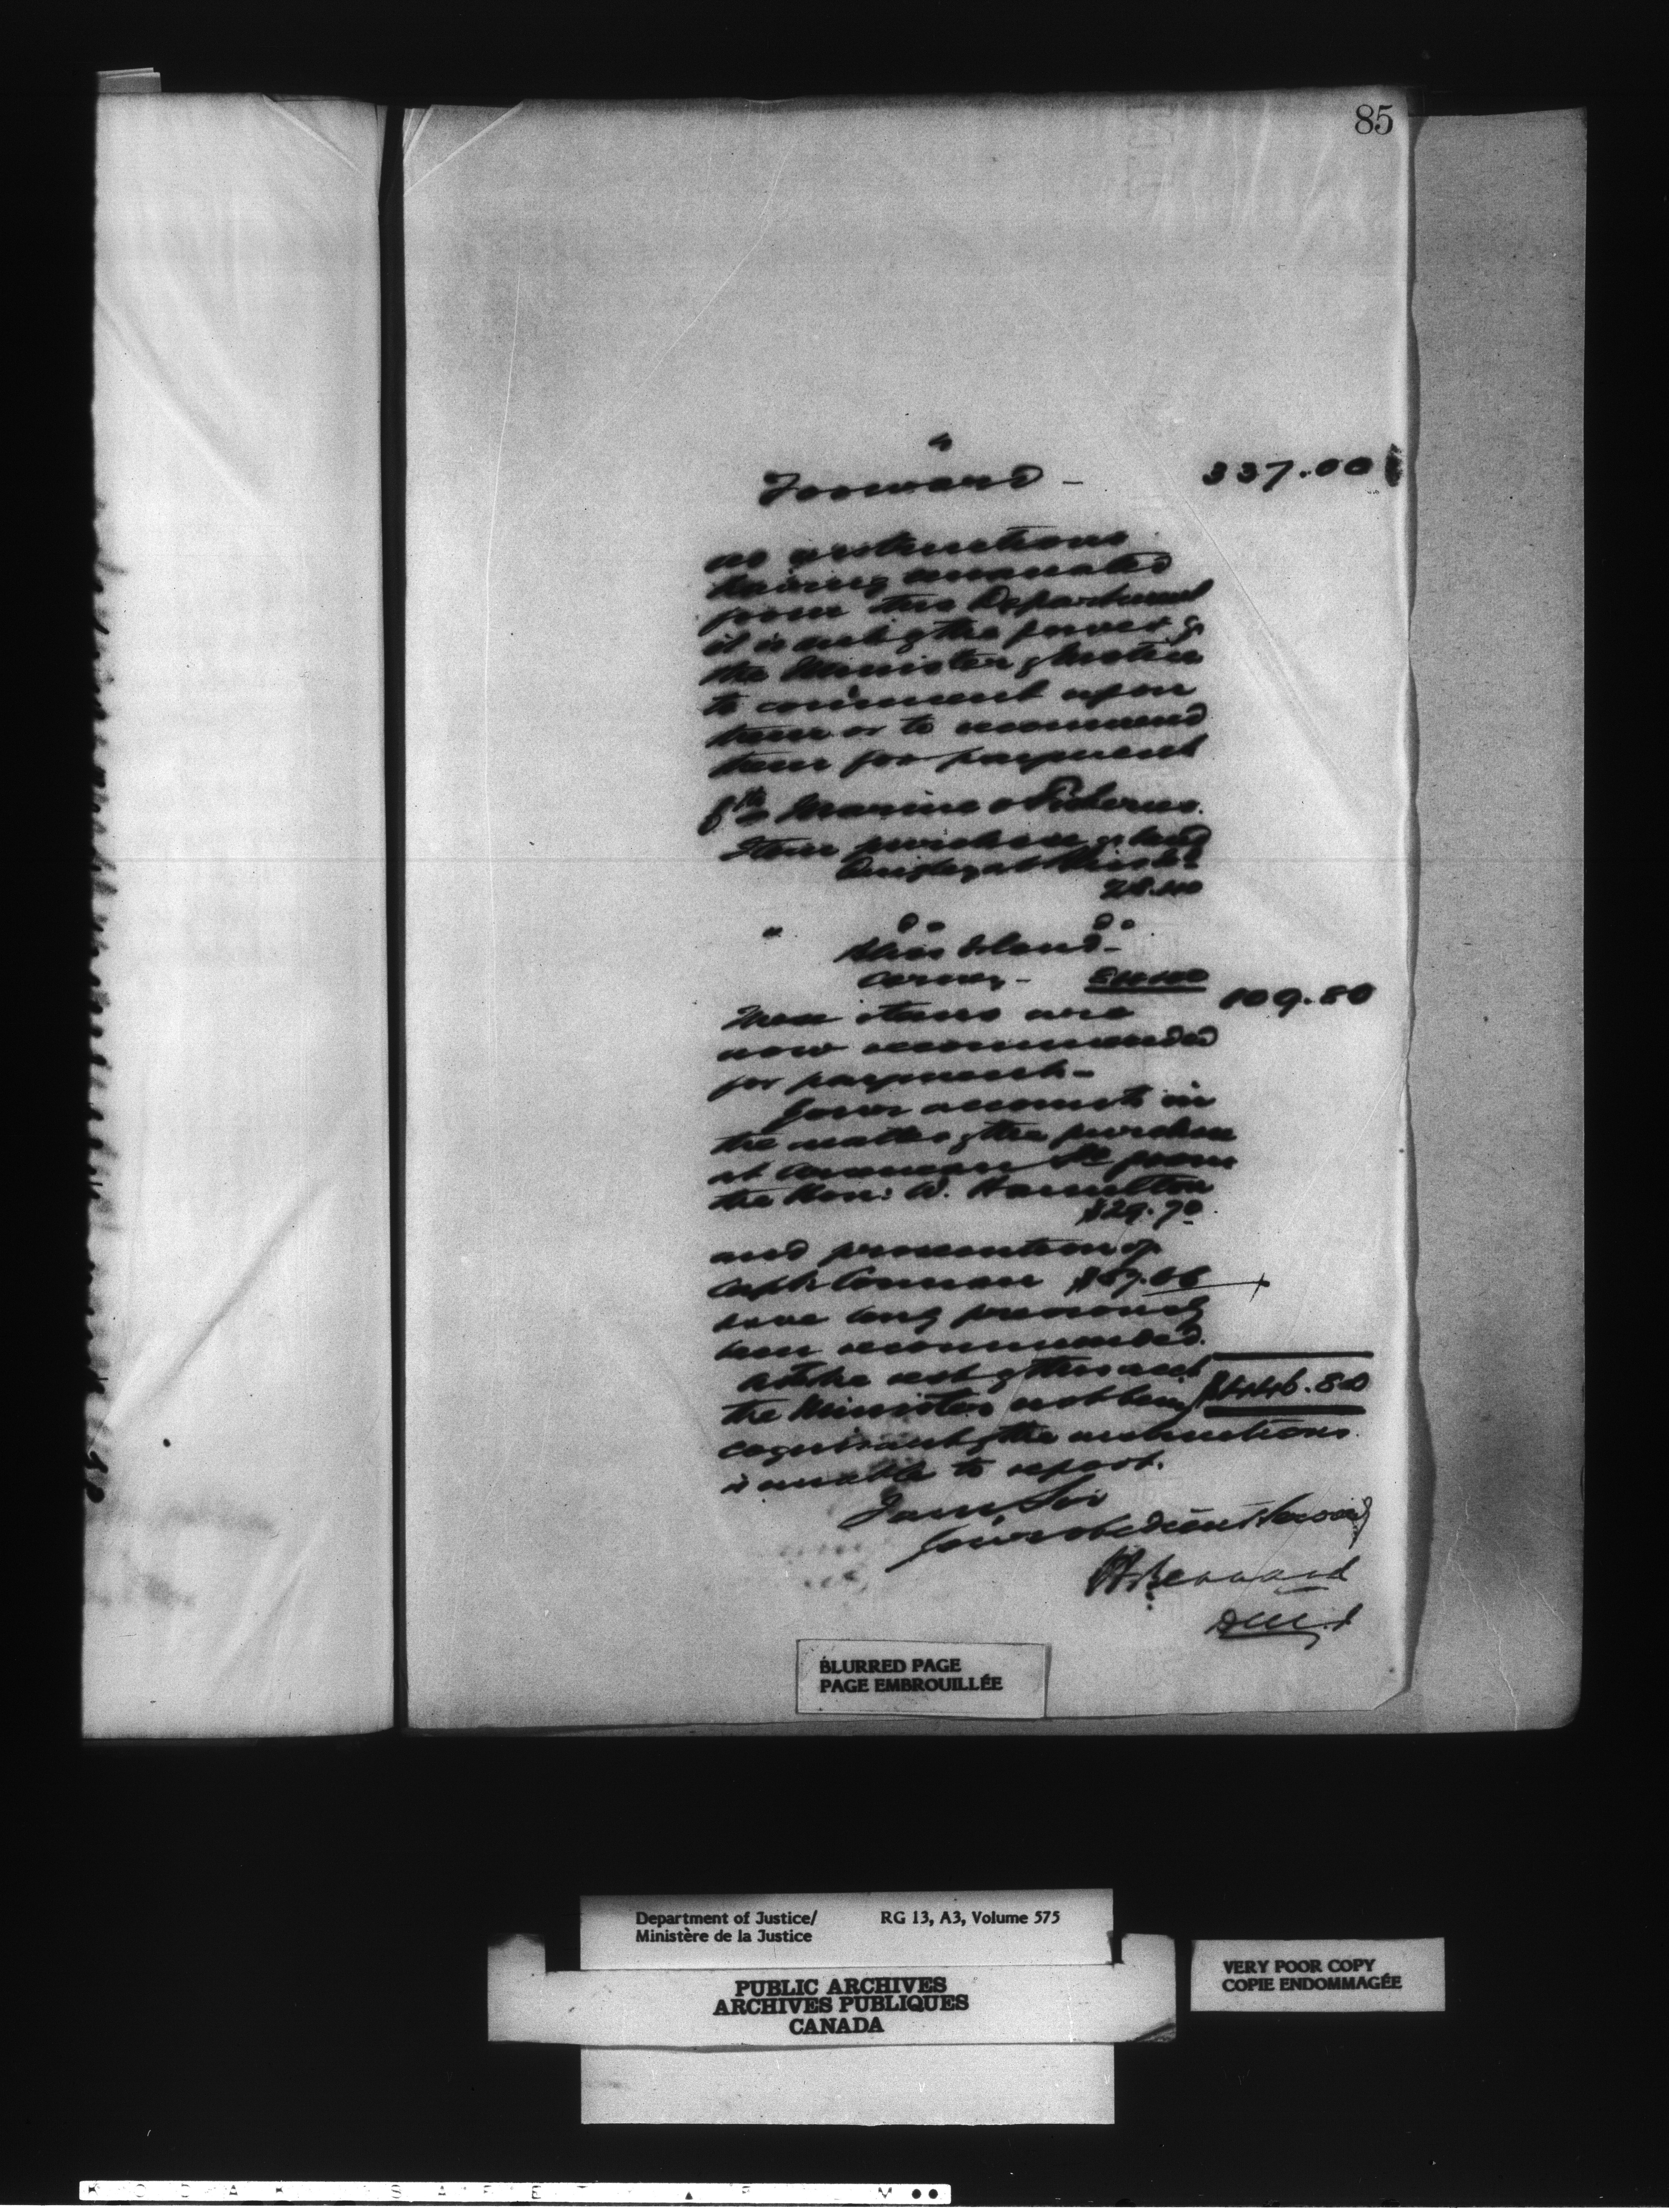 85
Forward - 337.00
no instructions
having emanated
from this Department
it is not of the power of
the Minister of Justice
to comment upon
them or to recommend
them for payment
Marine & Fisheries.
Item purchase of land
at
" do do
Island -
109.80
These items are
now recommended
for payment -
Your accounts in
the matter of the purchase
at from
the Hon: W. Hamilton
$29.70
and prosecution of
Capt.
have long previously
been recommended.
As the rest of this acct
the Minister not being $446.80
cognizant of the instructions
is unable to report.
I am Sir
Your obedient Servant
H. Bernard
D.M.J
BLURRED PAGE
PAGE EMBROUILLÉE
Department of Justice/ RG 13, A3, Volume 575
Ministère de la Justice
PUBLIC ARCHIVES
ARCHIVES PUBLIQUES
CANADA
VERY POOR COPY
COPIE ENDOMMAGÉE
K O D A K S A F E T Y F I L M